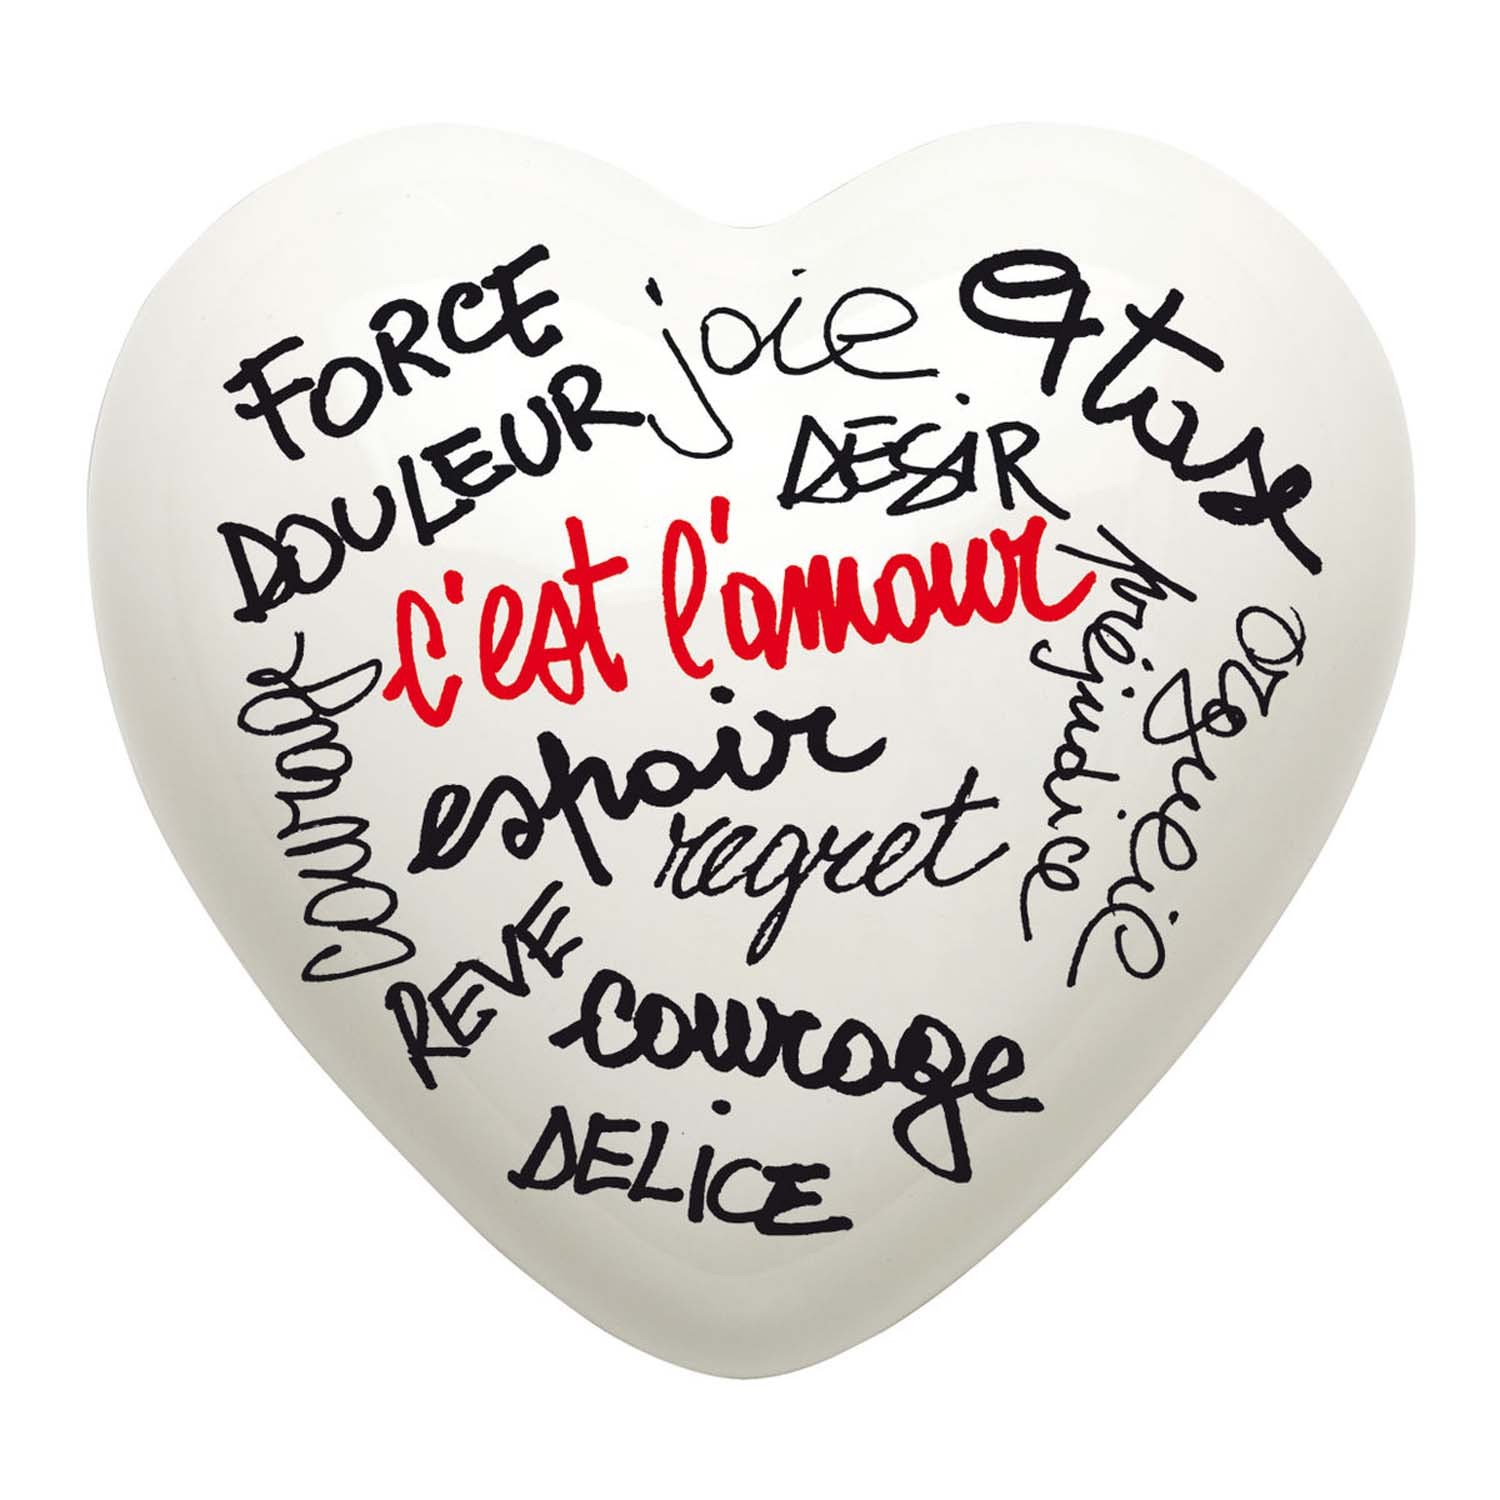 FORCE
joie
DOULEUR
DESIR
c'est l'amour
préjudice
courage
espoir
regret
REVE
courage
DELICE